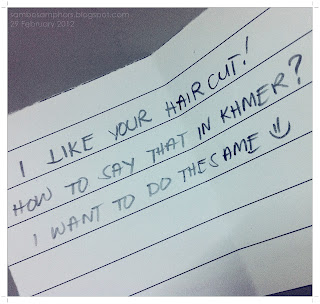 sambosamphors.blogspot.com
29 February 2012
I LIKE YOUR HAIRCUT!
HOW TO SAY THAT IN KHMER?
I WANT TO DO THESAME